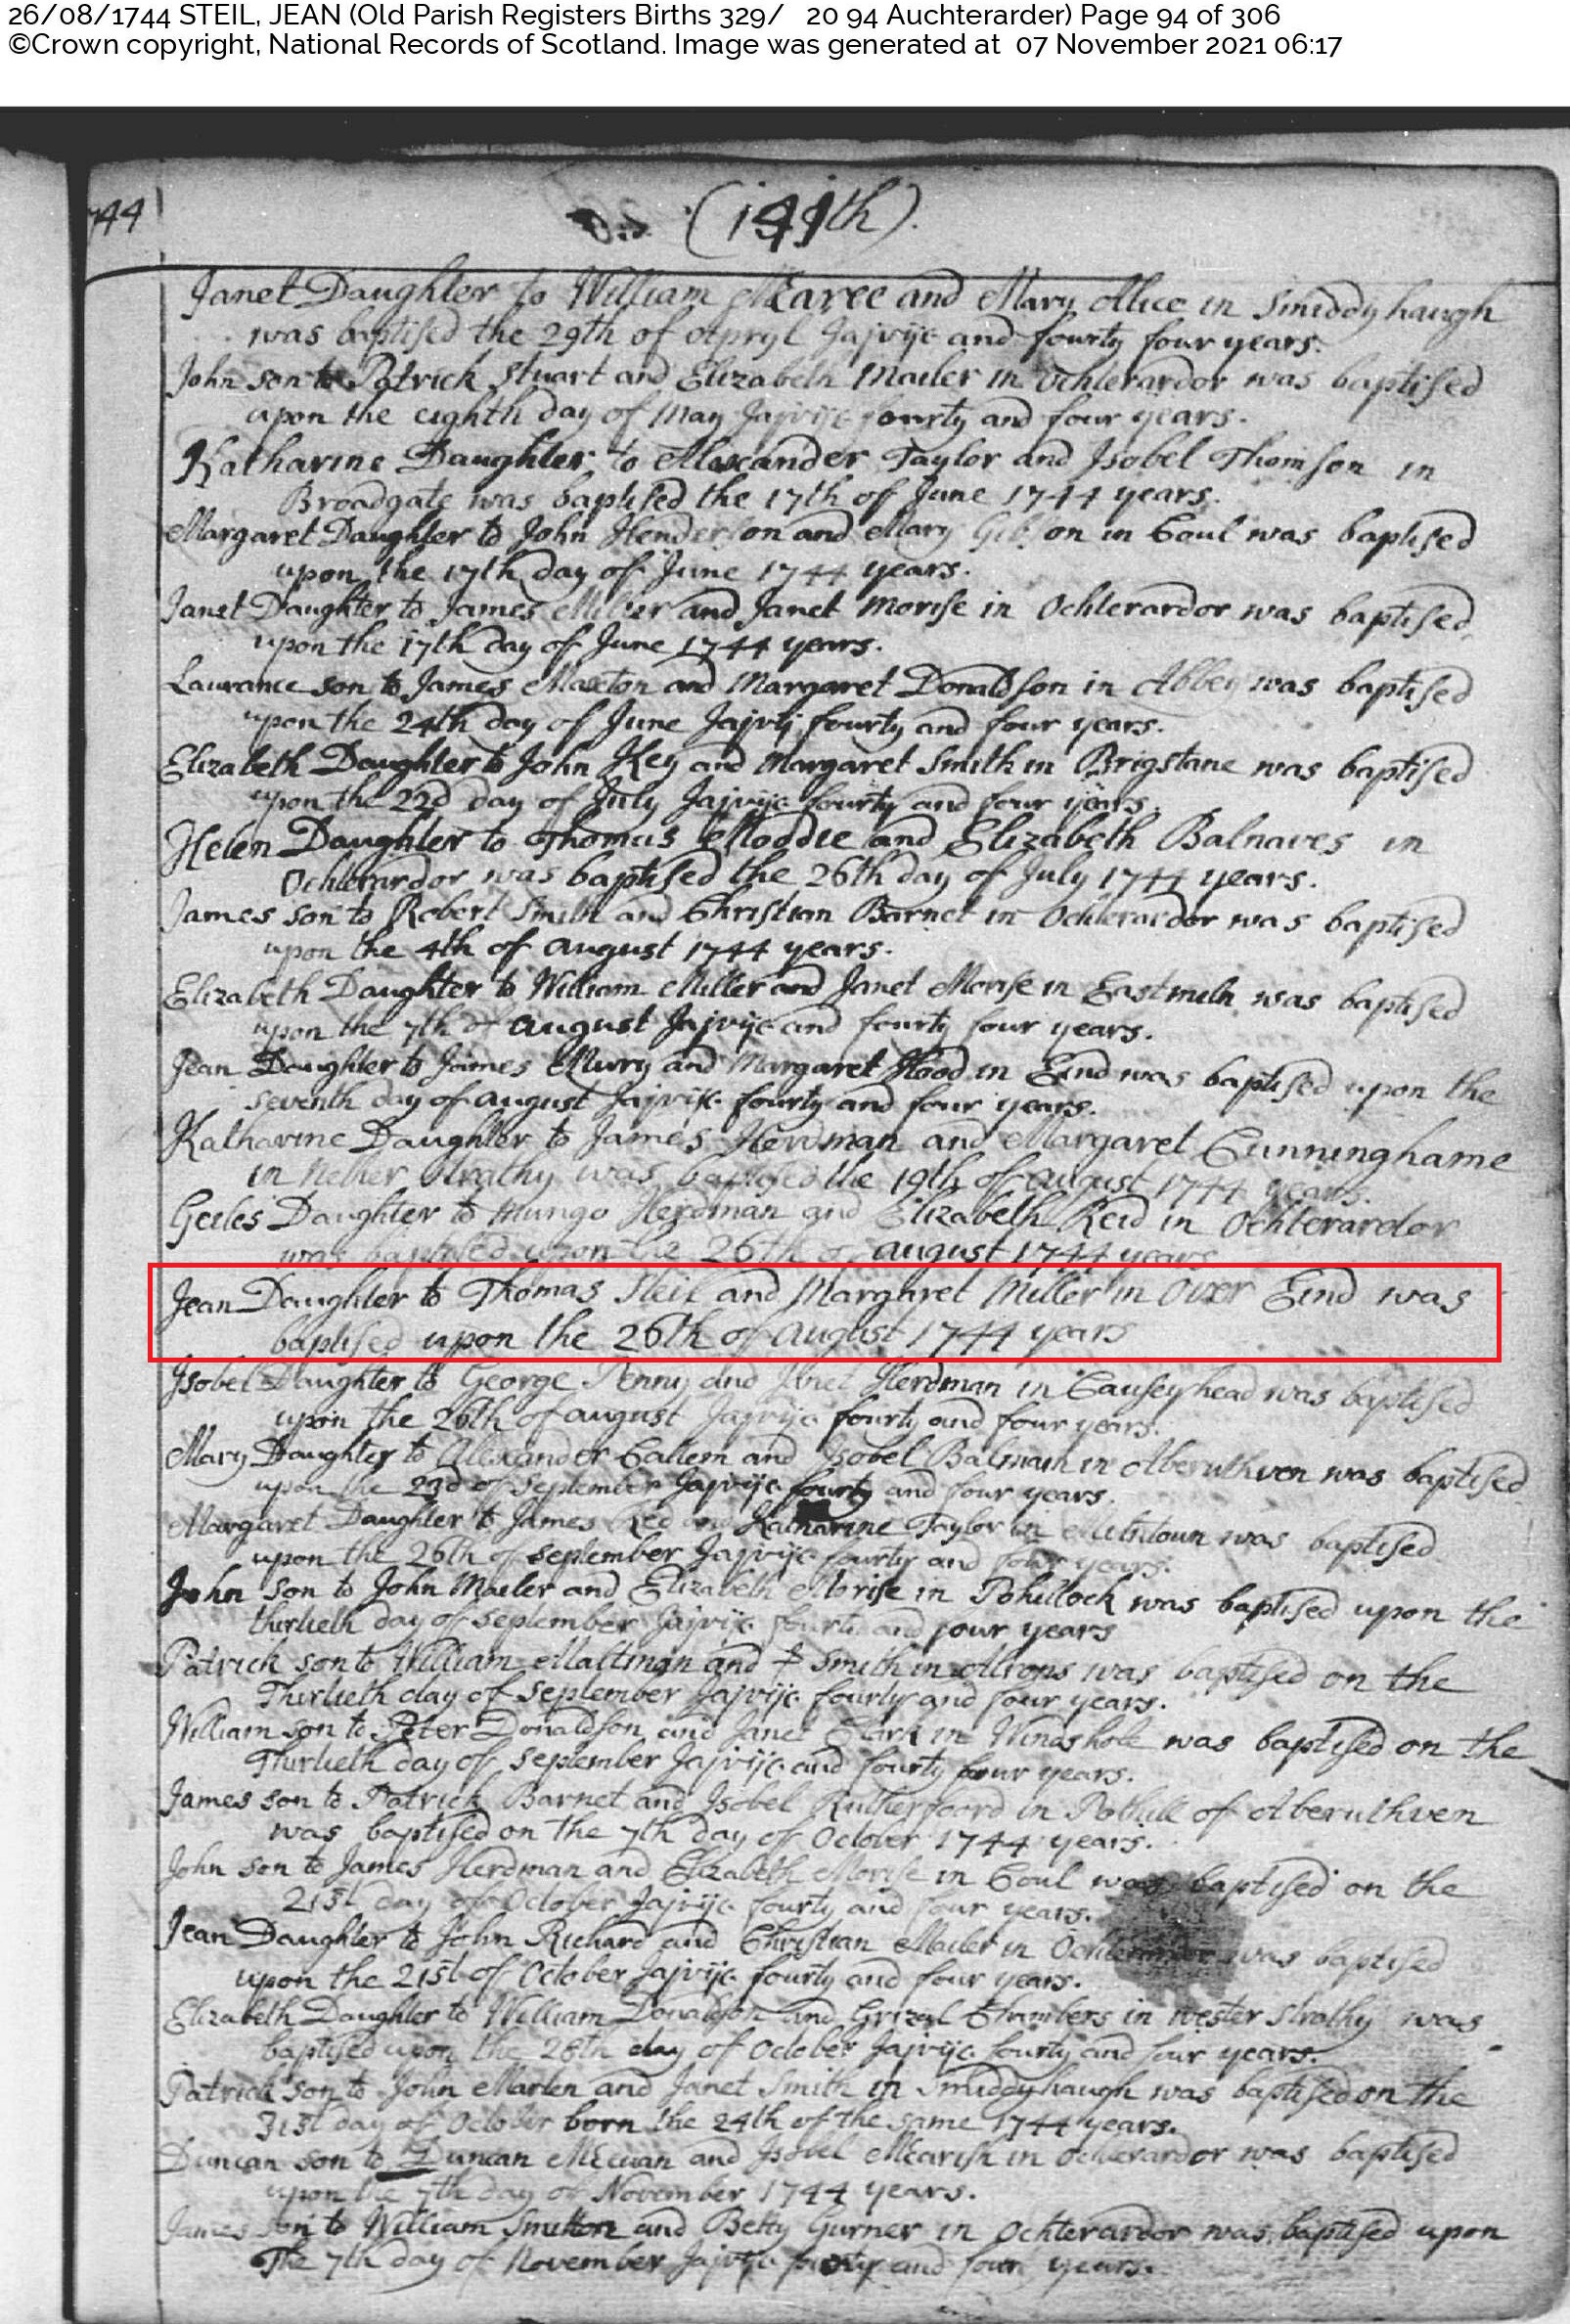 26/08/1744 STEIL, JEAN (Old Parish Registers Births 329/ 20 94 Auchterarder) Page 94 of 306
©Crown copyright, National Records of Scotland. Image was generated at 07 November 2021 06:17
744
(141th).
Janet Daughter to William and Mary Mice in Smiddyhaugh
was baptised the 29th of Apryl Jajvijc and fourty four years.
John son to Patrick Stuart and Elizabeth Mailer in Ochterardor was baptised
upon the eighth day of May Jajvijc fourty and four years.
Katharine Daughter to Alexander Taylor and Isobel Thomson in
Broadgate was baptised the 17th of June 1744 years.
Margaret Daughter to John Henderson and Mary Gibson in Coul was baptised
upon the 17th day of June 1744 years.
Janet Daughter to James Miller and Janet Morise in Ochterardor was baptised
upon the 17th day of June 1744 years.
Laurance son to James Maxton and Margaret Donaldson in Abbey was baptised
upon the 24th day of June Jajvij fourty and four years.
Elizabeth Daughter to John Key and Margaret Smith in Brigstane was baptised
upon the 22d day of July Jajvijc fourty and four years.
Helen Daughter to Thomas Moddie and Elizabeth Balnaves in
Ochterardor was baptised the 26th day of July 1744 years.
James son to Robert Smith and Christian Barnet in Ochterardor was baptised
upon the 4th of August 1744 years.
Elizabeth Daughter to William Miller and Janet Morise in Eastmiln was baptised
upon the 7th of August Jajvijc and fourty four years.
Jean Daughter to James Murry and Margaret Hood in Eind was baptised upon the
seventh day of August Jajvijc fourty and four years.
Katharine Daughter to James Herdman and Margaret Cunninghame
in Nether Strathy was baptised the 19th of August 1744 years.
Geiles Daughter to Mungo Herdman and Elizabeth Reid in Ochterardor
was baptised upon the 26th of August 1744 years
Jean Daughter to Thomas Steil and Margaret Miller in Over Eind was
baptised upon the 26th of August 1744 years
Isobel Daughter to George Penny and Janet Herdman in Causeyhead was baptised
upon the 26th of August Jajvijc fourty and four years.
Mary Daughter to Alexander Callem and Isobel Balmain in Aberuthven was baptised
upon the 23d of September Jajvijc fourty and four years.
Margaret Daughter to James and Katharine Taylor in was baptised
upon the 26th of September Jajvijc fourty and four years.
John son to John Mailer and Elizabeth Morise in Pohillock was baptised upon the
thirtieth day of September Jajvijc fourty and four years
Patrick son to William Maltman and Smith in was baptised on the
Thirtieth day of September Jajvijc fourty and four years.
William son to Peter Donaldson and Janet Clark in Windshole was baptised on the
Thirtieth day of September Jajvijc and fourty four years.
James son to Patrick Barnet and Isobel Rutherfoord in Pothill of Aberuthven
was baptised on the 7th day of October 1744 years.
John son to James Herdman and Elizabeth Morise in Coul was baptised on the
21st day of October Jajvijc fourty and four years.
Jean Daughter to John Richard and Christian Mailer in Ochterardor was baptised
upon the 21st of October Jajvijc fourty and four years.
Elizabeth Daughter to William Donaldson and Grizel Chambers in wester Strathy was
baptised upon the 28th day of October Jajvijc fourty and four years.
Patrick son to John Marlen and Janet Smith in Smiddyhaugh was baptised on the
31st day of October born the 24th of the same 1744 years.
Duncan son to Duncan McEwan and Isobel in Ochterardor was baptised
upon the 7th day of November 1744 years.
James son to William Smitton and Betty Gurner in Ochterardor was baptised upon
The 7th day of November Jajvijc fourty and four years.